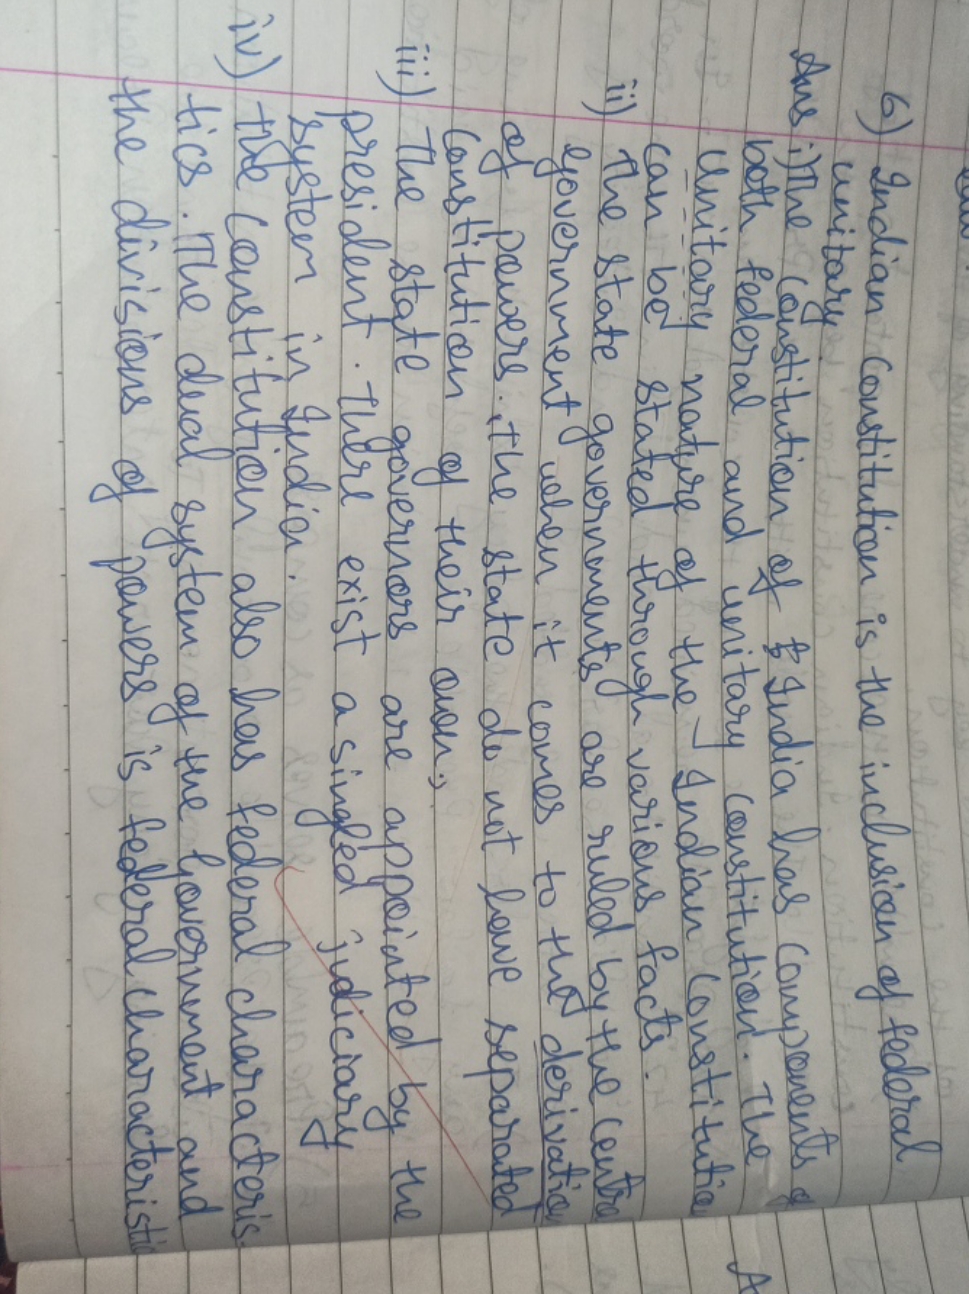 6) Indian Constitution is the inclusion of federal
unitary
Ans i) The Constitution of India has components of
both federal and unitary constitution. The
unitary nature of the Indian Constitution
can be stated through various facts.
ii) The state governments are ruled by the centra
government when it comes to the derivation
of powers. The state do not have separated
Constitution of their own.
iii) The state governors are appointed by the
president. There exist a singled judiciary
system in India.
iv) The Constitution also has federal characteris-
tics. The dual system of the Government and
the divisions of powers is federal characteristic